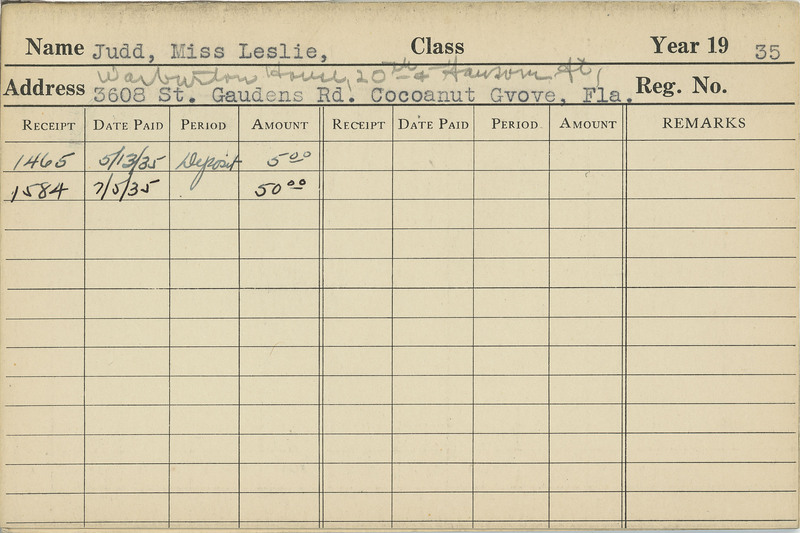 Name Judd, Miss Leslie, Class Year 19 35
Warburton House, 20th & Sansom St,
Address 3608 St. Gaudens Rd. Cocoanut Gvove, Fla. Reg. No.
RECEIPT DATE PAID PERIOD AMOUNT RECEIPT DATE PAID PERIOD AMOUNT REMARKS
1465 5/13/35 Deposit 5 00
1584 7/5/35 50 00